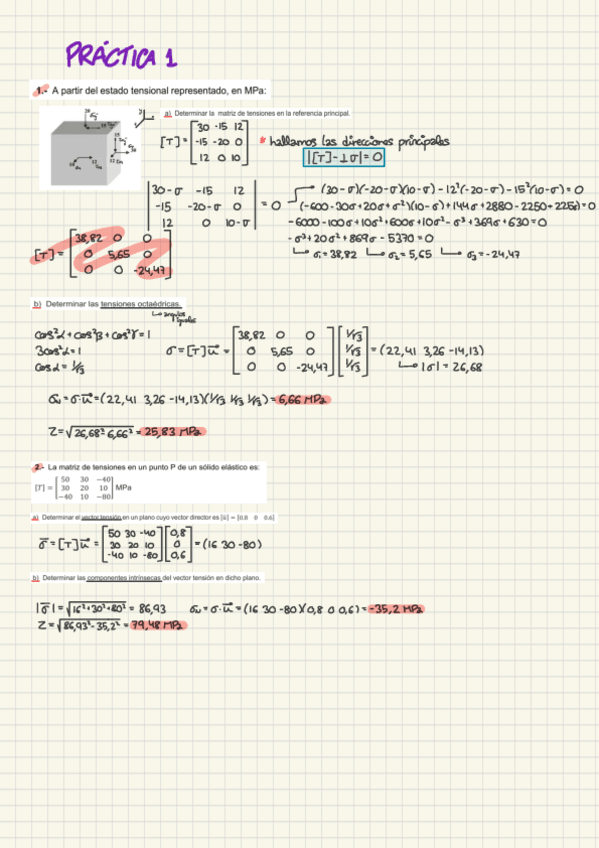 PRÁCTICA 1
1.- A partir del estado tensional representado, en MPa:
a) Determinar la matriz de tensiones en la referencia principal.
[T] = [30 -15 12
-15 -20 0
12 0 10]
* hallamos las direcciones principales
|[T]-⊥σ| = 0
|30-σ -15 12
-15 -20-σ 0
12 0 10-σ| = 0
(30-σ)(-20-σ)(10-σ) - 12²(-20-σ) - 15²(10-σ) = 0
(-600-30σ+20σ+σ²)(10-σ)+144σ+2880-2250+225σ = 0
-6000-100σ+10σ²+600σ+10σ²-σ³+369σ+630=0
-σ³+20σ²+869σ-5370=0
σ₁=38,82 σ₂=5,65 σ₃=-24,47
[T] = [38,82 0 0
0 5,65 0
0 0 -24,47]
b) Determinar las tensiones octaédricas.
angulos iguales
cos²α+cos²β+cos²γ=1
3cos²α=1
cosα=1/√3
σ=[T]u = [38,82 0 0
0 5,65 0
0 0 -24,47] [1/√3
1/√3
1/√3] = (22,41 3,26 -14,13)
|σ| = 26,68
σν=σ·u=(22,41 3,26 -14,13)(1/√3 1/√3 1/√3)=6,66 MPa
Z=√26,68² 6,66² = 25,83 MPa
2.- La matriz de tensiones en un punto P de un sólido elástico es:
[T] = [50 30 -40
30 20 10
-40 10 -80] MPa
a) Determinar el vector tensión en un plano cuyo vector director es [u] = [0.8 0 0.6]
σ=[T]u = [50 30 -40
30 20 10
-40 10 -80] [0,8
0
0,6] = (16 30 -80)
b) Determinar las componentes intrínsecas del vector tensión en dicho plano.
|σ| = √16²+30²+80² = 86,93 σν=σ·u=(16 30 -80)(0,8 0 0,6)=-35,2 MPa
Z=√86,93²-35,2² = 79,48 MPa